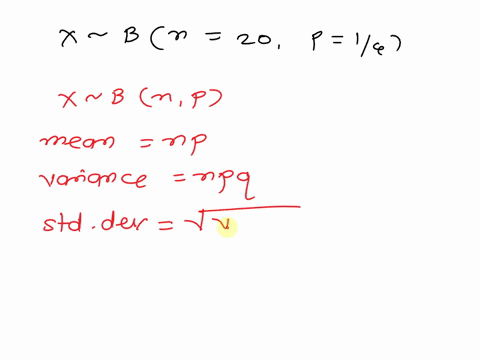 X ~ B ( n = 20, P = 1/4 )
X ~ B ( n, p )
mean = np
variance = npq
std. dev = √v